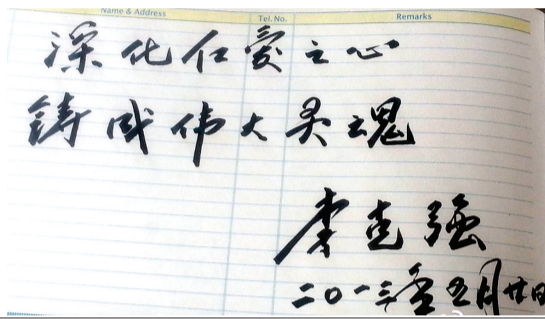 Name & Address Tel. No. Remarks
深化仁爱之心
铸成伟大灵魂
李克强
二〇一三年五月廿日